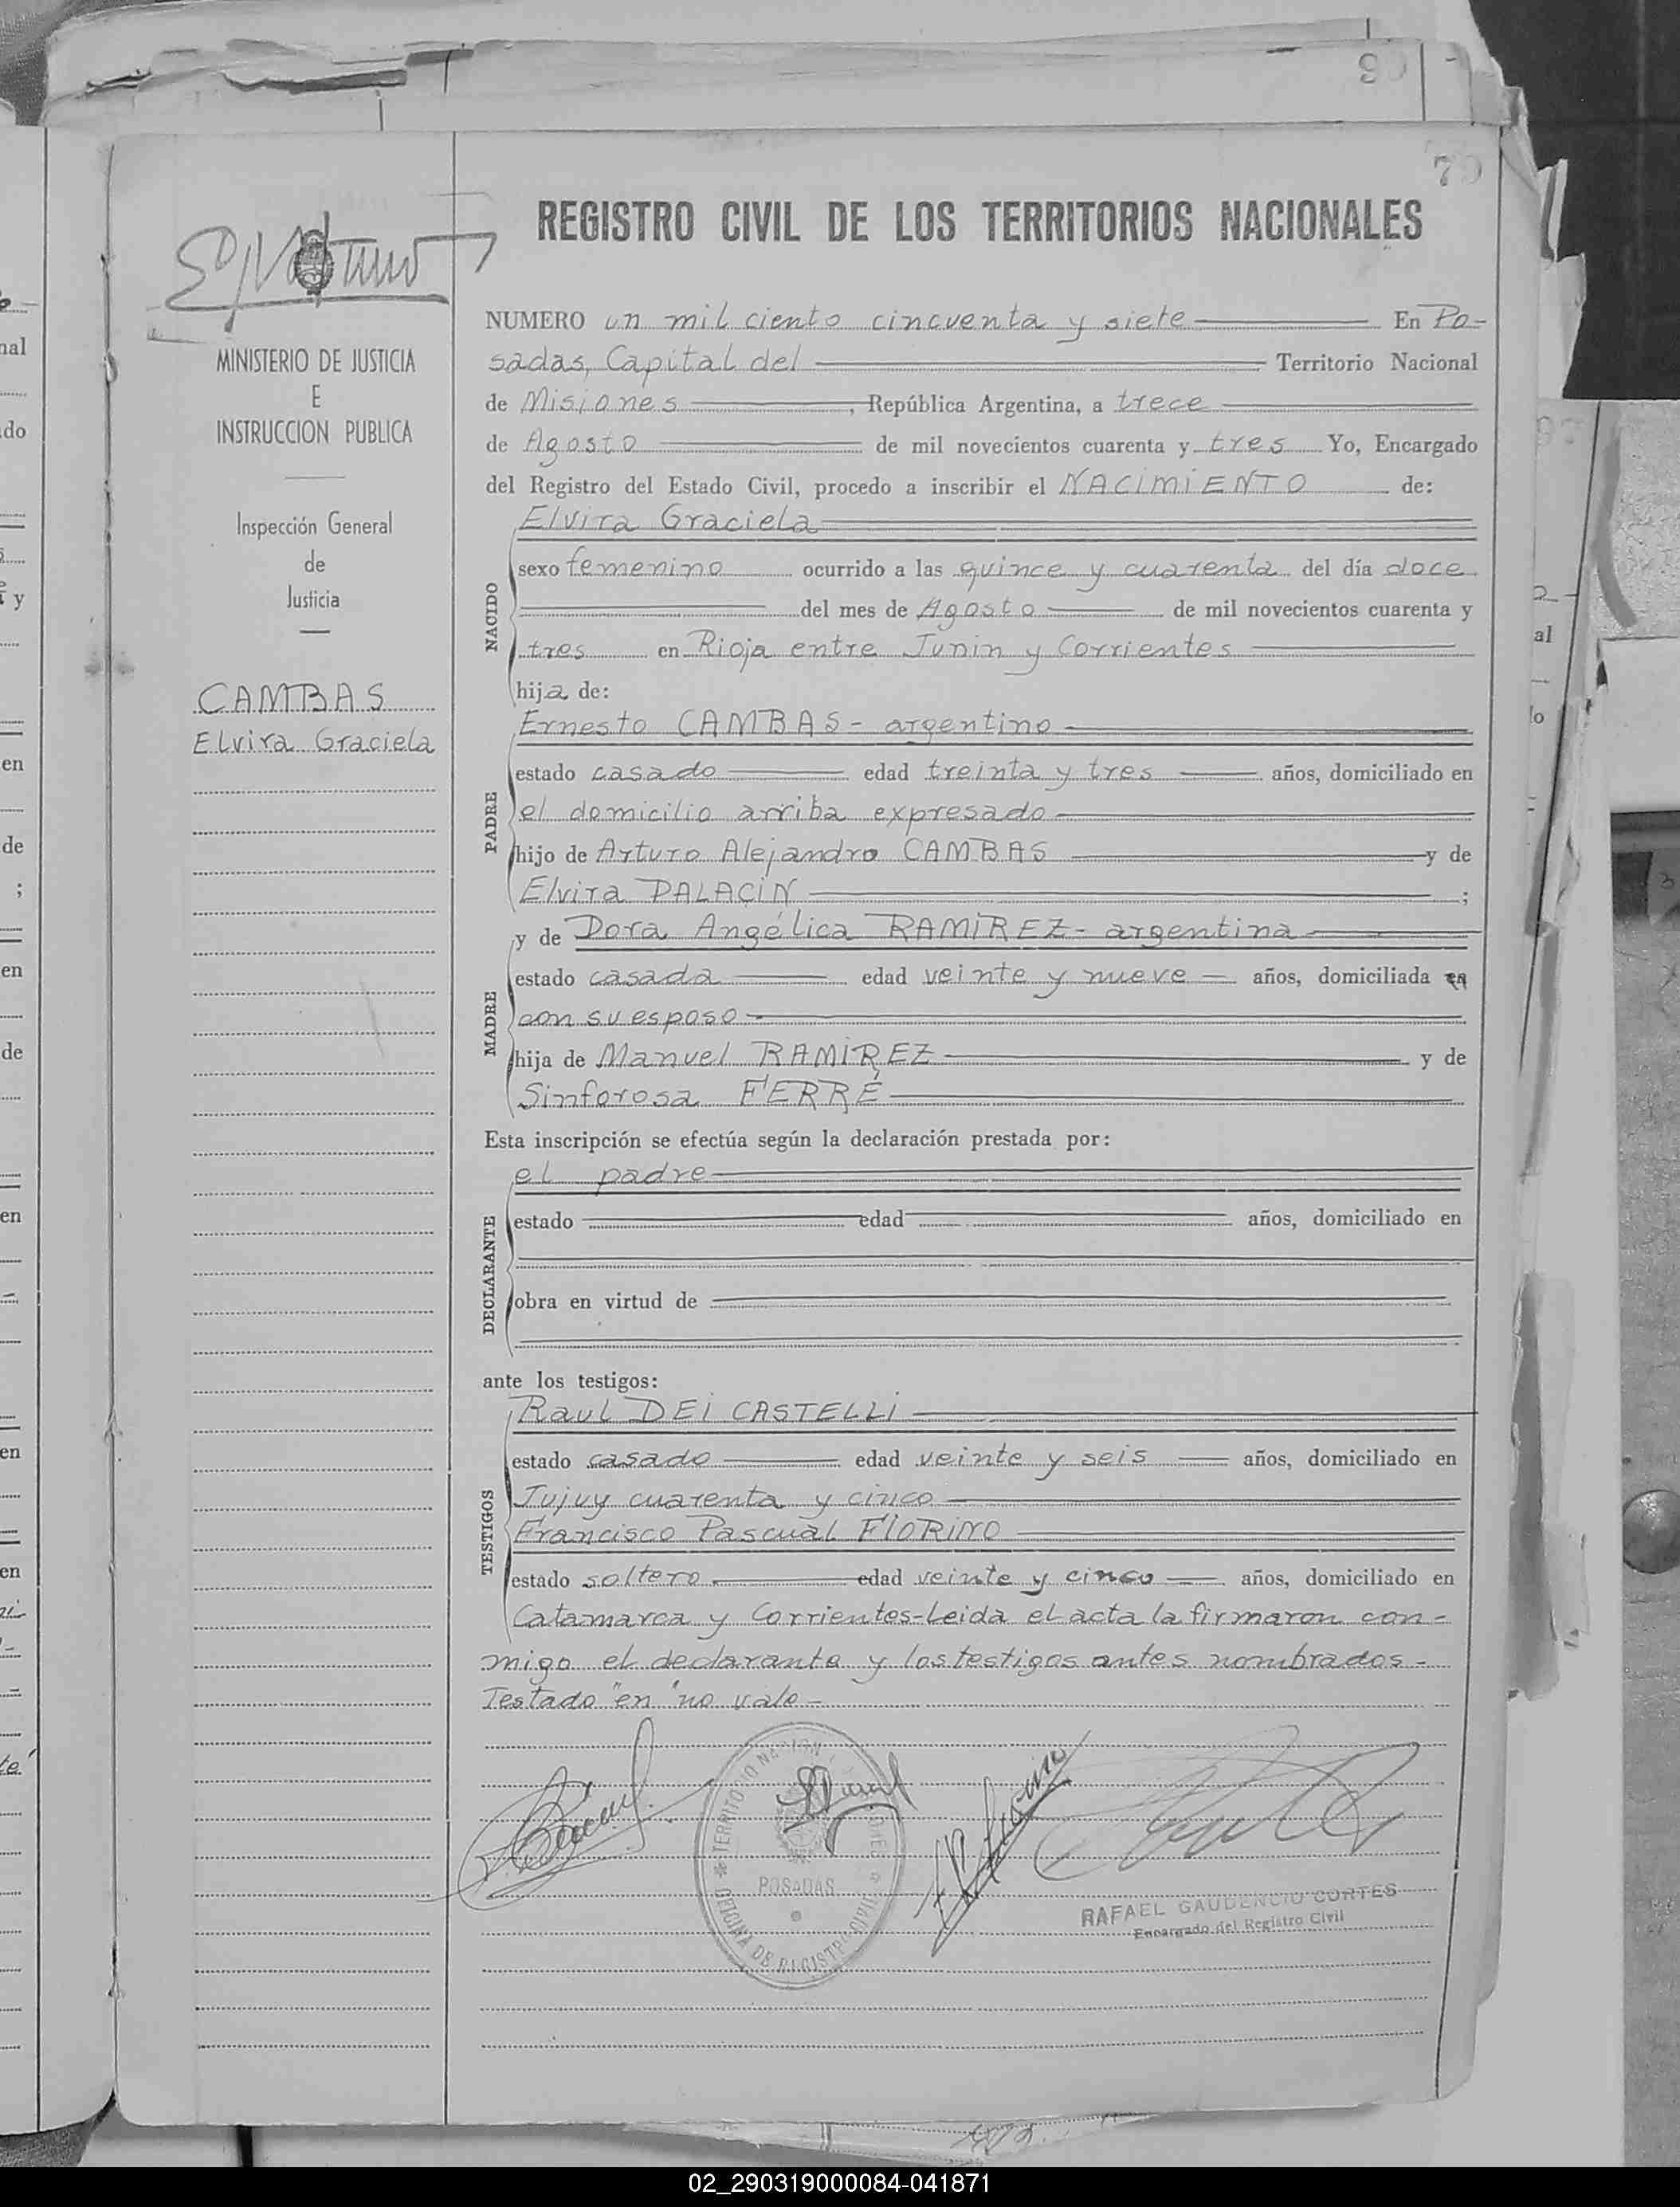 79
REGISTRO CIVIL DE LOS TERRITORIOS NACIONALES
MINISTERIO DE JUSTICIA
E
INSTRUCCION PUBLICA
Inspección General
de
Justicia
CAMBAS
Elvira Graciela
NUMERO un mil ciento cincuenta y siete En Po-
sadas, Capital del Territorio Nacional
de Misiones, República Argentina, a trece
de Agosto de mil novecientos cuarenta y tres Yo, Encargado
del Registro del Estado Civil, procedo a inscribir el NACIMIENTO de:
NACIDO
Elvira Graciela
sexo femenino ocurrido a las quince y cuarenta del día doce
del mes de Agosto de mil novecientos cuarenta y
tres en Rioja entre Junin y Corrientes
hija de:
PADRE
Ernesto CAMBAS - argentino
estado casado edad treinta y tres años, domiciliado en
el domicilio arriba expresado
hijo de Arturo Alejandro CAMBAS y de
Elvira PALACIN ;
MADRE
y de Dora Angélica RAMIREZ - argentina
estado casada edad veinte y nueve años, domiciliada en
con su esposo -
hija de Manuel RAMIREZ y de
Sinforosa FERRÉ
Esta inscripción se efectúa según la declaración prestada por:
DECLARANTE
el padre
estado edad años, domiciliado en
obra en virtud de
ante los testigos:
TESTIGOS
Raul DEI CASTELLI
estado casado edad veinte y seis años, domiciliado en
Jujuy cuarenta y cinco
Francisco Pascual FIORINO
estado soltero edad veinte y cinco años, domiciliado en
Catamarca y Corrientes - Leida el acta la firmaron con-
migo el declarante y los testigos antes nombrados -
Testado "en" no vale -
TERRITORIO NACIONAL
POSADAS
OFICINA DE REGISTRO CIVIL
RAFAEL GAUDENCIO CORTES
Encargado del Registro Civil
02_290319000084-041871